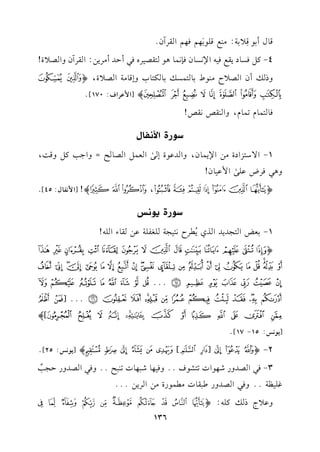 قال أبو قِلابة: منع قلوبَهم فهم القرآن.
٤- كل فساد يقع فيه الإنسان فإنما هو لتقصيره في أحد أمرين: القرآن والصلاة!
وذلك أن الصلاح منوط بالتمسك بالكتاب وإقامة الصلاة، ﴿وَٱلَّذِينَ يُمَسِّكُونَ
بِٱلْكِتَٰبِ وَأَقَامُوا۟ ٱلصَّلَوٰةَ إِنَّا لَا نُضِيعُ أَجْرَ ٱلْمُصْلِحِينَ﴾ [الأعراف: ١٧٠].
فالتمام تمام، والنقص نقص!
سورة الأنفال
١- الاستزادة من الإيمان، والدعوة إلى العمل الصالح = واجب كل وقت،
وهي فرض على الأعيان!
﴿يَٰٓأَيُّهَا ٱلَّذِينَ ءَامَنُوٓا۟ إِذَا لَقِيتُمْ فِئَةً فَٱثْبُتُوا۟ وَٱذْكُرُوا۟ ٱللَّهَ كَثِيرًا﴾ [الأنفال: ٤٥].
سورة يونس
١- بعض التجديد الذي يُطرح نتيجة للغفلة عن لقاء الله!
﴿وَإِذَا تُتْلَىٰ عَلَيْهِمْ ءَايَاتُنَا بَيِّنَٰتٍ قَالَ ٱلَّذِينَ لَا يَرْجُونَ لِقَآءَنَا ٱئْتِ بِقُرْءَانٍ غَيْرِ هَٰذَآ
أَوْ بَدِّلْهُ قُلْ مَا يَكُونُ لِىٓ أَنْ أُبَدِّلَهُۥ مِن تِلْقَآئِ نَفْسِىٓ إِنْ أَتَّبِعُ إِلَّا مَا يُوحَىٰٓ إِلَىَّ إِنِّىٓ أَخَافُ
إِنْ عَصَيْتُ رَبِّى عَذَابَ يَوْمٍ عَظِيمٍ ... قُل لَّوْ شَآءَ ٱللَّهُ مَا تَلَوْتُهُۥ عَلَيْكُمْ وَلَآ
أَدْرَىٰكُم بِهِۦ فَقَدْ لَبِثْتُ فِيكُمْ عُمُرًا مِّن قَبْلِهِۦٓ أَفَلَا تَعْقِلُونَ ... فَمَنْ أَظْلَمُ
مِمَّنِ ٱفْتَرَىٰ عَلَى ٱللَّهِ كَذِبًا أَوْ كَذَّبَ بِـَٔايَٰتِهِۦٓ إِنَّهُۥ لَا يُفْلِحُ ٱلْمُجْرِمُونَ﴾
[يونس: ١٥- ١٧].
٢- ﴿وَٱللَّهُ يَدْعُوٓا۟ إِلَىٰ دَارِ ٱلسَّلَٰمِ وَيَهْدِى مَن يَشَآءُ إِلَىٰ صِرَٰطٍ مُّسْتَقِيمٍ﴾ [يونس: ٢٥].
٣- في الصدور شهوات تتشوف .. وفيها شبهات تنبح .. وفي الصدور حجبٌ
غليظة .. وفي الصدور طبقات مطمورة من الرين ...
وعلاج ذلك كله: ﴿يَٰٓأَيُّهَا ٱلنَّاسُ قَدْ جَآءَتْكُم مَّوْعِظَةٌ مِّن رَّبِّكُمْ وَشِفَآءٌ لِّمَا فِى
١٣٦